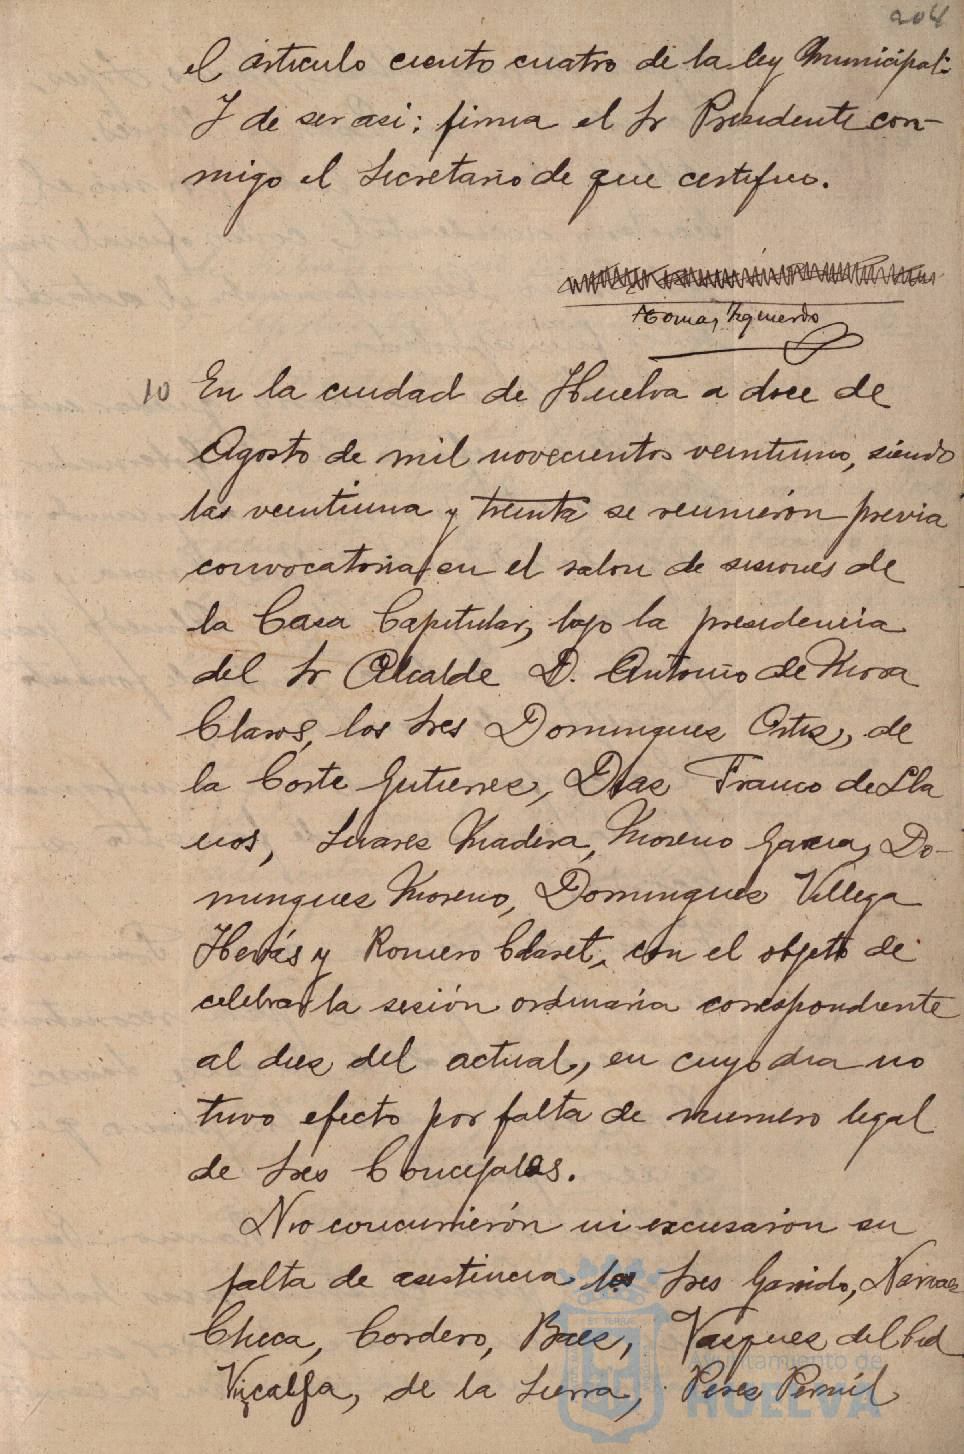 204
el articulo ciento cuatro de la ley Municipal:
Y de ser asi; firma el Sr Presidente con-
migo el Secretario de que certifico.
Tomas Yzquierdo
10 En la ciudad de Huelva a doce de
Agosto de mil novecientos veintiuno, siendo
las veintiuna y treinta se reunierón previa
convocatoria en el salon de sesiones de
la Casa Capitular, bajo la presidencia
del Sr Alcalde D. Antonio de Mora
Claros, los Sres Domingues Ortis, de
la Corte Gutierres, Dias Franco de Lla
nos, Suares Madera, Moreno Garcia, Do-
mingues Moreno, Domingues Villega
Herás y Romero Claret, con el objeto de
celebrar la sesión ordinaria correspondiente
al dies del actual, en cuyo dia no
tuvo efecto por falta de numero legal
de Sres Concejales.
No concurrierón ni excusaron su
falta de asistencia los Sres Garrido, Narvaes
Checa, Cordero, Baes, Vasques del Cid
Viçalfa, de la Sierra, Peres Pernil
Ayuntamiento de
HUELVA